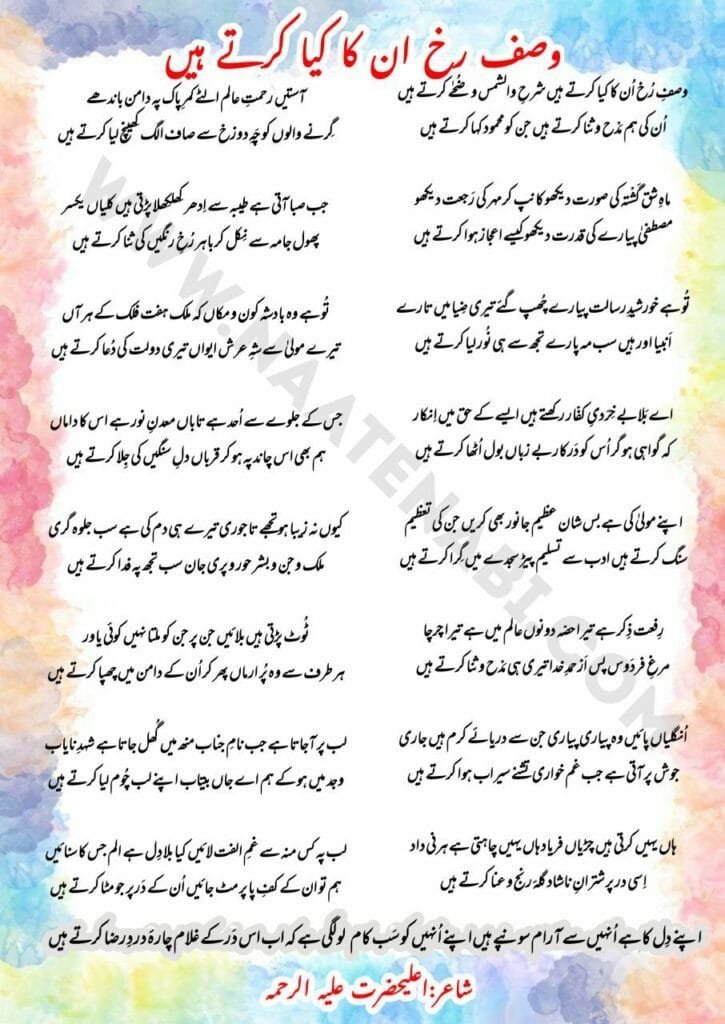 وصف رخ ان کا کیا کرتے ہیں
وصفِ رُخ اُن کا کیا کرتے ہیں شرحِ والشمس و ضُحٰے کرتے ہیں
اُن کی ہم مدْح و ثنا کرتے ہیں جن کو محمود کہا کرتے ہیں
ماہِ شق گشتہ کی صورت دیکھو کانپ کر مہر کی رَجعت دیکھو
مصطفٰی پیارے کی قدرت دیکھو کیسے اعجاز ہوا کرتے ہیں
تُو ہے خورشیدِ رسالت پیارے چھپ گئے تیری ضِیا میں تارے
اَنبیا اور ہیں سب مہ پارے تجھ سے ہی نُور لیا کرتے ہیں
اے بَلا بے خِرَدیِ کفّار رکھتے ہیں ایسے کے حق میں اِنکار
کہ گواہی ہو گر اُس کو دَرکار بے زباں بول اُٹھا کرتے ہیں
اپنے مولیٰ کی ہے بس شان عظیم جانور بھی کریں جن کی تعظیم
سنگ کرتے ہیں ادب سے تسلیم پیڑ سجدے میں گِرا کرتے ہیں
رِفعتِ ذِکر ہے تیرا حصّہ دونوں عالم میں ہے تیرا چرچا
مرغِ فردَوس پس اَز حمدِ خدا تیری ہی مدْح و ثنا کرتے ہیں
اُنگلیاں پائیں وہ پیاری پیاری جن سے دریائے کرم ہیں جاری
جوش پر آتی ہے جب غم خواری تشنے سیراب ہوا کرتے ہیں
ہاں یہیں کرتی ہیں چڑیاں فریاد ہاں یہیں چاہتی ہے ہرنی داد
اِسی در پر شترانِ ناشاد گلۂ رنج و عنا کرتے ہیں
آستیں رحمتِ عالم الٹے کمرِ پاک پہ دامن باندھے
گِرنے والوں کو چَہِ دوزخ سے صاف الگ کھینچ لیا کرتے ہیں
جب صبا آتی ہے طیبہ سے اِدھر کھلکھلا پڑتی ہیں کلیاں یکسر
پھول جامہ سے نِکل کر باہر رُخِ رنگیں کی ثنا کرتے ہیں
تُو ہے وہ بادشہِ کون و مکاں کہ ملک ہفت فلک کے ہر آں
تیرے مولیٰ سے شہِ عرش ایواں تیری دولت کی دُعا کرتے ہیں
جس کے جلوے سے اُحد ہے تاباں معدنِ نور ہے اس کا داماں
ہم بھی اس چاند پہ ہو کر قرباں دلِ سنگیں کی جِلا کرتے ہیں
کیوں نہ زیبا ہو تجھے تاجوری تیرے ہی دم کی ہے سب جلوہ گری
ملک و جن و بشر حور و پری جان سب تجھ پہ فدا کرتے ہیں
ٹُوٹ پڑتی ہیں بلائیں جن پر جن کو ملتا نہیں کوئی یاور
ہر طرف سے وہ پُر ارماں پھر کر اُن کے دامن میں چھپا کرتے ہیں
لب پر آجاتا ہے جب نامِ جناب منھ میں گُھل جاتا ہے شہدِ نایاب
وجد میں ہو کے ہم اے جاں بیتاب اپنے لب چُوم لیا کرتے ہیں
لب پہ کس منہ سے غمِ الفت لائیں کیا بلا دِل ہے الم جس کا سنائیں
ہم تو ان کے کفِ پا پر مٹ جائیں اُن کے دَر پر جو مٹا کرتے ہیں
اپنے دِل کا ہے اُنہیں سے آرام سونپے ہیں اپنے اُنہیں کو سَب کام لو لگی ہے کہ اب اس دَر کے غلام چارۂ دردِ رضا کرتے ہیں
شاعر:اعلیحضرت علیہ الرحمہ
WWW.NAATENABI.COM